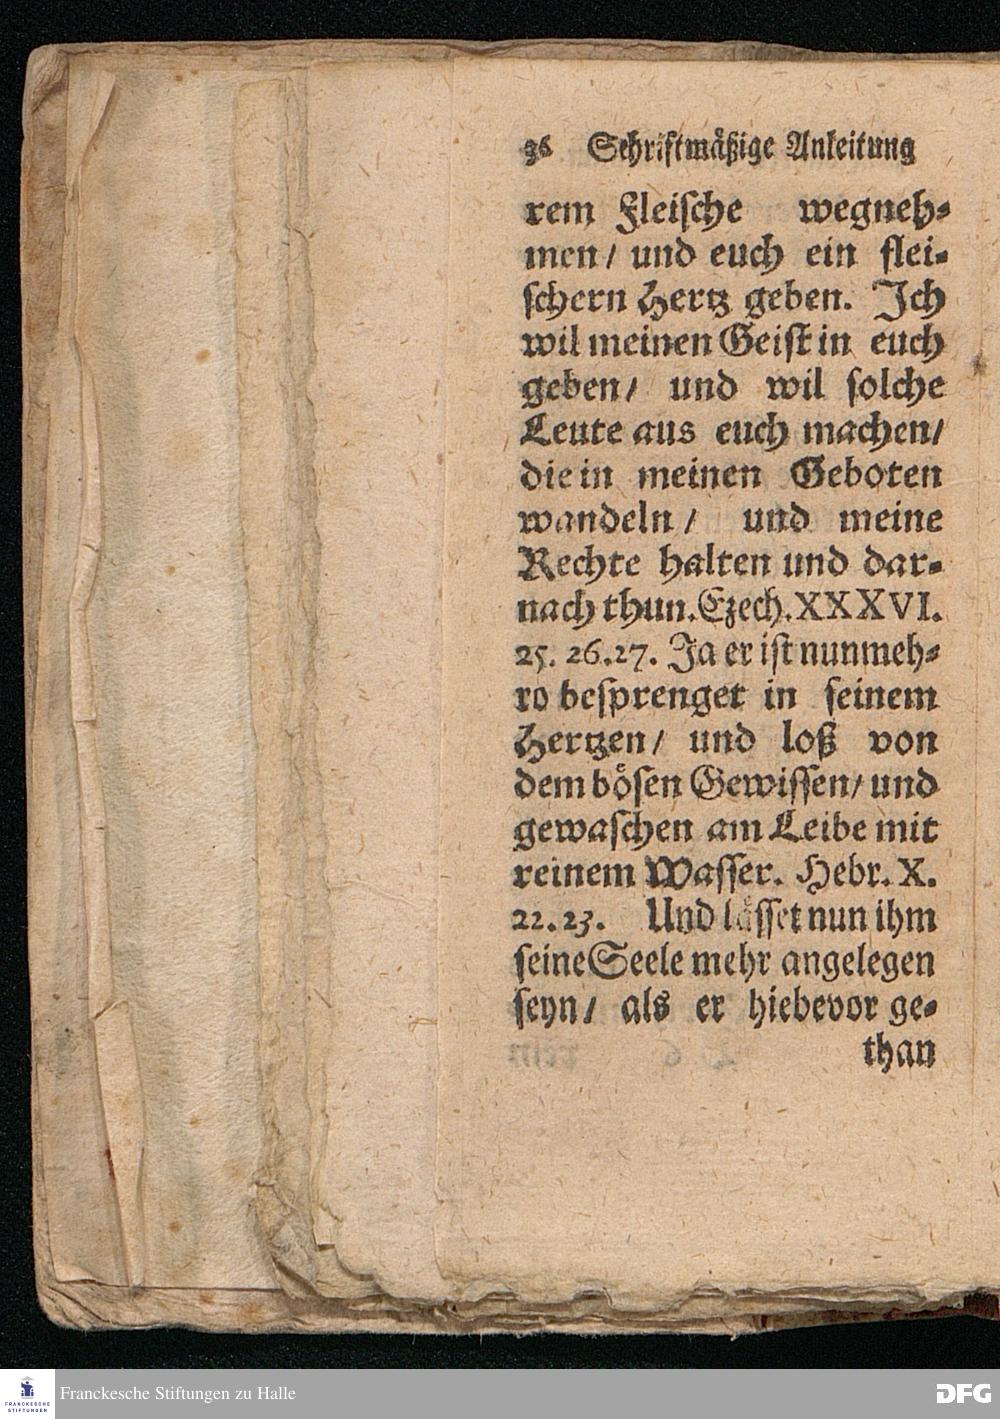 36 Schriftmäßige Anleitung
rem Fleische wegneh-
men/ und euch ein flei-
schern Hertz geben. Ich
wil meinen Geist in euch
geben/ und wil solche
Leute aus euch machen/
die in meinen Geboten
wandeln/ und meine
Rechte halten und dar-
nach thun. Ezech. XXXVI.
25. 26. 27. Ja er ist nunmeh-
ro besprenget in seinem
Hertzen/ und loß von
dem bösen Gewissen/ und
gewaschen am Leibe mit
reinem Wasser. Hebr. X.
22. 23. Und lässet nun ihm
seine Seele mehr angelegen
seyn/ als er hiebevor ge-
than
FRANCKESCHE
STIFTUNGEN
Franckesche Stiftungen zu Halle
DFG